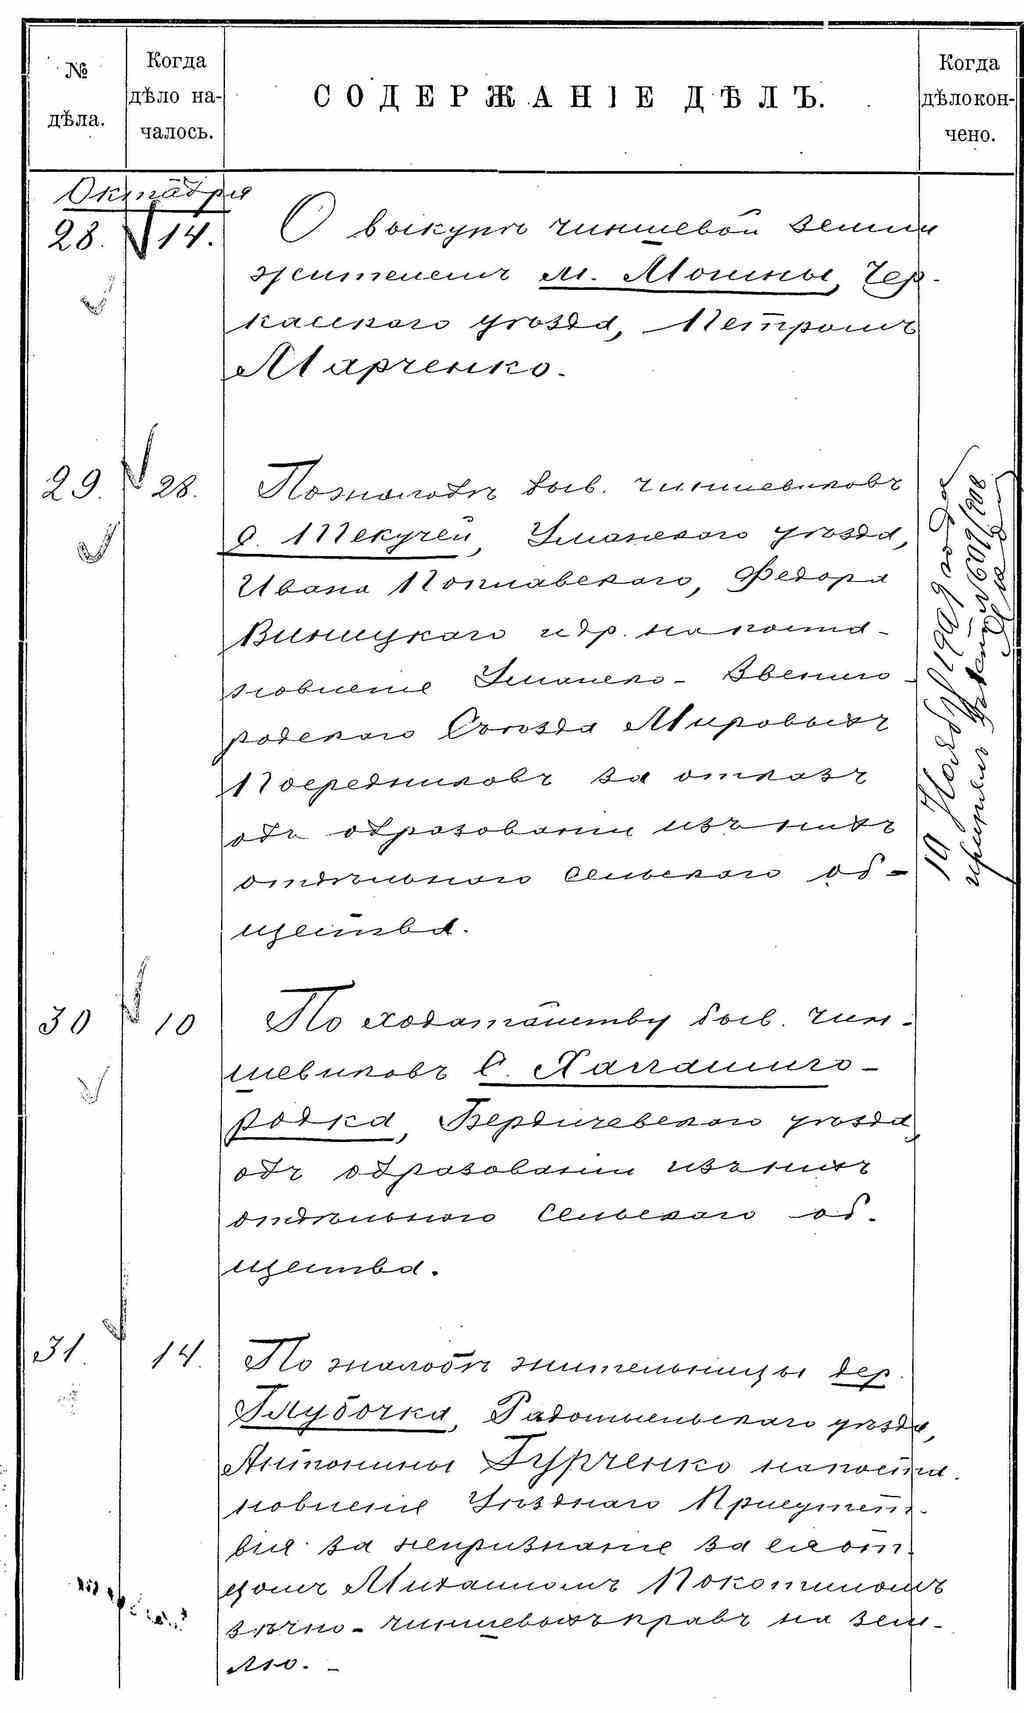 № дѣла.
Когда дѣло на-
чалось.
СОДЕРЖАНІЕ ДѢЛЪ.
Когда дѣло кон-
чено.
Октября
28. 14. О выкупѣ чиншевой земли
жителемъ м. Мошны, Чер-
касскаго уѣзда, Петромъ
Марченко.
29. 28. По жалобѣ быв. чиншевиковъ
д. Текучей, Уманскаго уѣзда,
Ивана Поплавскаго, Федора
Виницкаго и др. на поста-
новленіе Уманско-Звениго-
родскаго Съѣзда Мировыхъ
Посредниковъ за отказъ
объ образованіи изъ нихъ
отдѣльнаго сельскаго об-
щества.
10 Ноября 1909 года
30 10 По ходатайству быв. чин-
шевиковъ с. Халаимго-
родка, Бердичевскаго уѣзда,
объ образованіи изъ нихъ
отдѣльнаго сельскаго об-
щества.
31. 14. По жалобѣ жительницы дер.
Глубочка, Радомысльскаго уѣзда,
Антонины Гурченко на поста-
новленіе Уѣзднаго Присутст-
вія за непризнаніе за ея от-
цомъ Михаиломъ Покотиломъ
вѣчно-чиншевыхъ правъ на зем-
лю.-